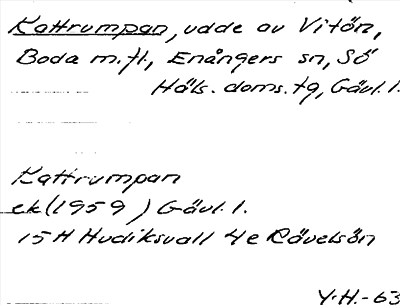 Kattrumpan, udde av Vitön,
Boda m.fl., Enångers sn, Sö
Häls. doms. tg, Gävl. l.
Kattrumpan
ek (1959) Gävl. l.
15H Hudiksvall 4e Rövelsön
Y.H.-63